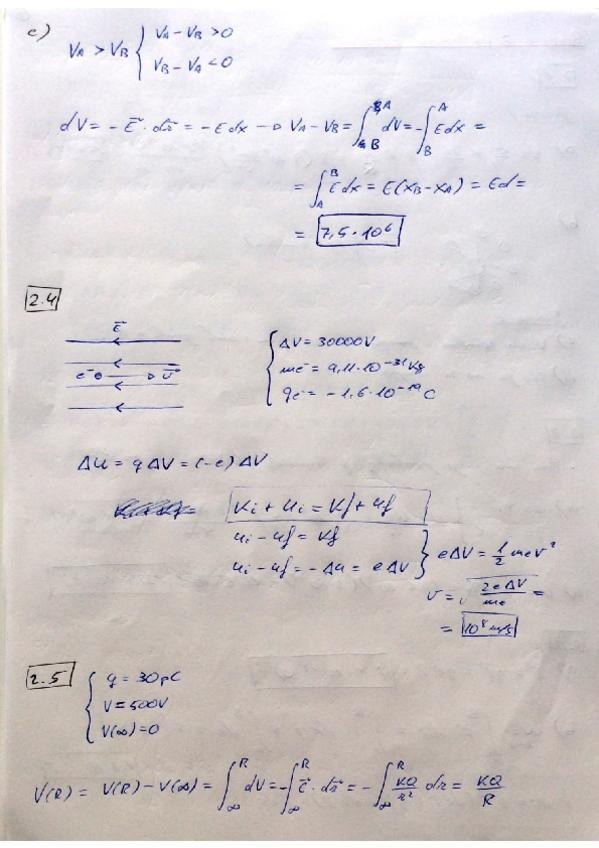 c)
VA > VB { VA - VB > 0
VB - VA < 0
dV = - E⃗ · dr⃗ = - E dx → VA - VB = ∫_B^A dV = - ∫_B^A E dx =
= ∫_A^B E dx = E(XB - XA) = Ed =
= 7,5 · 10^6
2.4
E⃗
e⁻ v⃗
ΔV = 30000V
me⁻ = 9,11 · 10^-31 Kg
qe⁻ = -1,6 · 10^-19 C
Δu = q ΔV = (-e) ΔV
Ki + ui = Kf + uf
ui - uf = Kf
ui - uf = -Δu = e ΔV } e ΔV = 1/2 me v²
v = √(2e ΔV / me) =
= 10^8 m/s
2.5
q = 30pC
V = 500V
V(∞) = 0
V(R) = V(R) - V(∞) = ∫_∞^R dV = - ∫_∞^R E⃗ · dr⃗ = - ∫_∞^R KQ/r² dr = KQ/R